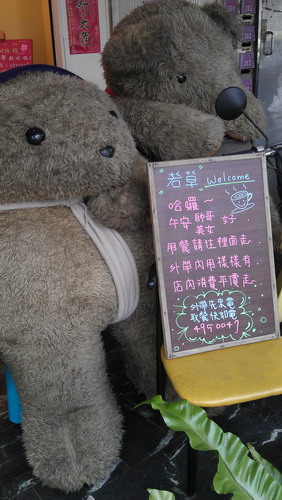 若草 Welcome
哈囉~
午安 帥哥 美女 好
用餐請往裡面走.
外帶內用樣樣有.
店內消費平價走.
外帶先來電
取餐快如電
4950047